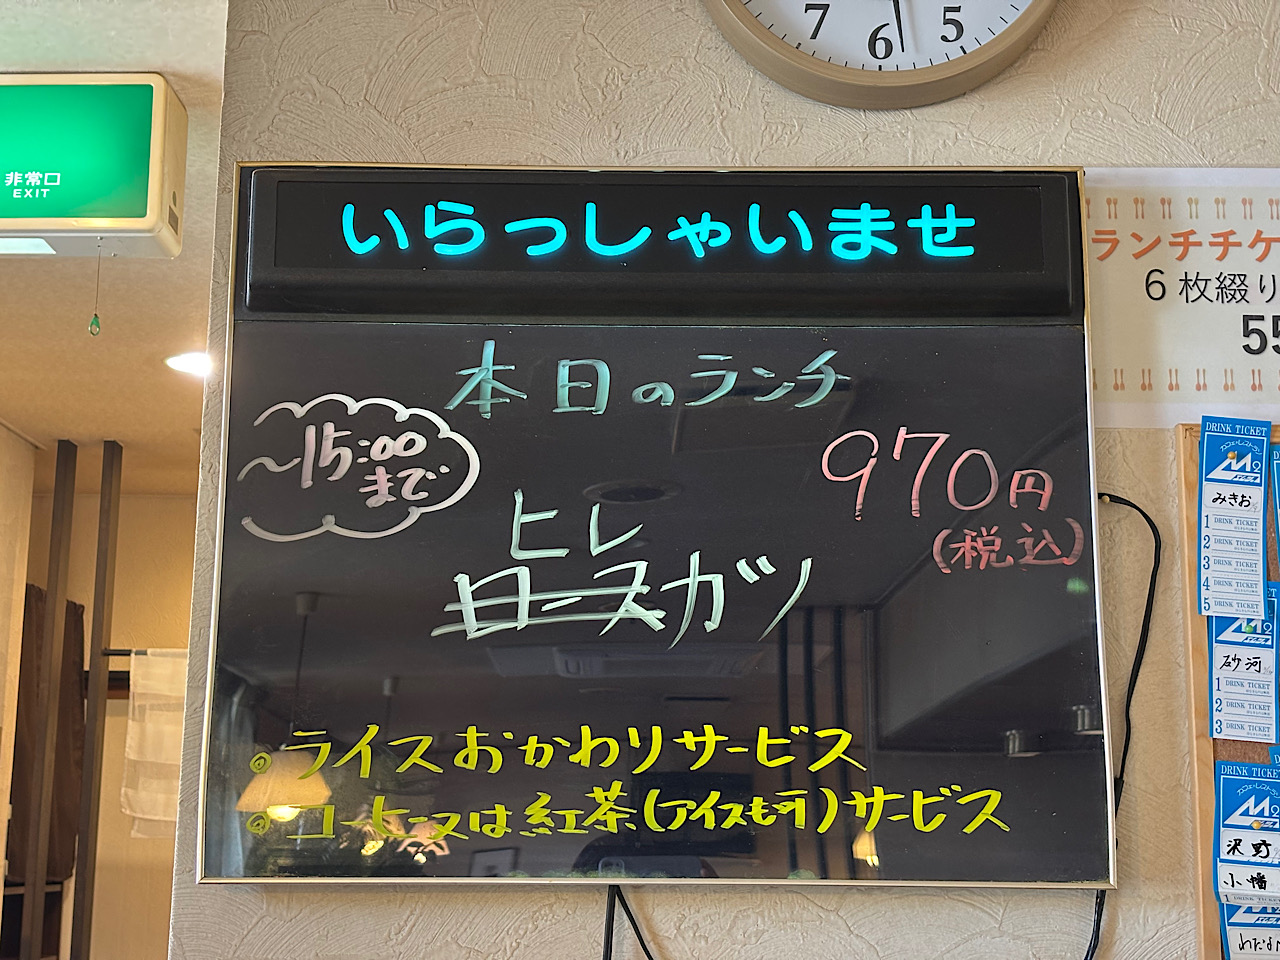 7 6 5
非常口
EXIT
いらっしゃいませ
ランチチケ
6枚綴り
55
本日のランチ
〜15:00
まで
970円
(税込)
ヒレ
ロースカツ
・ライスおかわりサービス
・コーヒー又は紅茶(アイスも可)サービス
DRINK TICKET
M2
みきお
1 DRINK TICKET
2 DRINK TICKET
3 DRINK TICKET
4 DRINK TICKET
5 DRINK TICKET
M2
砂河
1 DRINK TICKET
2 DRINK TICKET
3 DRINK TICKET
DRINK TICKET
沢野
小幡
1 DRINK TICKET